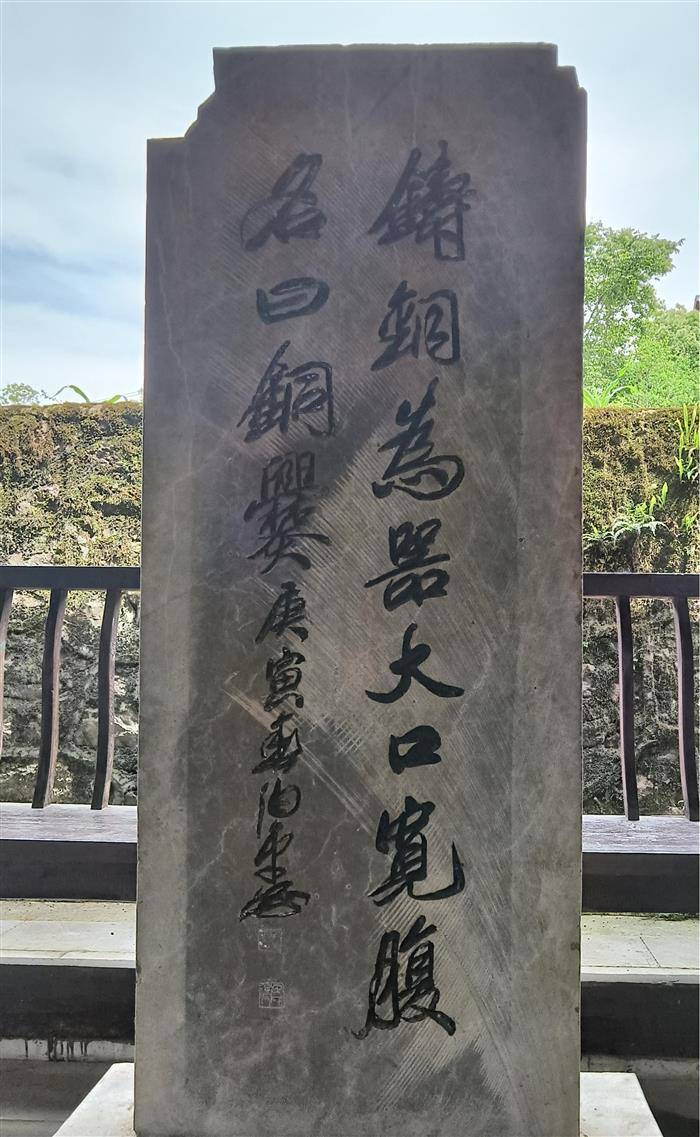 鑄銅為器大口寬腹
名曰銅爨庚寅春伯平書